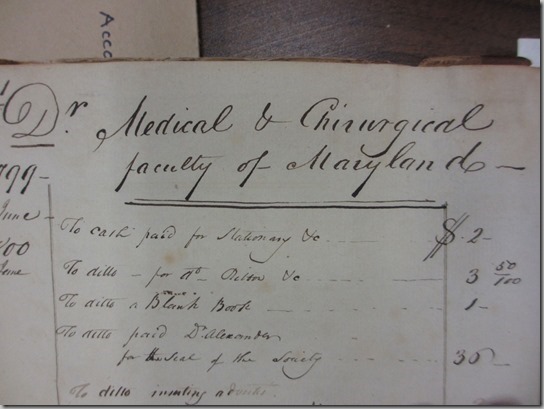 Acco
Dr Medical & Chirurgical
faculty of Maryland —
799 —
June — To cash paid for Stationary &c $ 2 -
800
June To ditto — for do &c 3 50/100
To ditto a Blank Book 1 -
To ditto paid Dr Alexander
for the Seal of the Society 30 -
To ditto